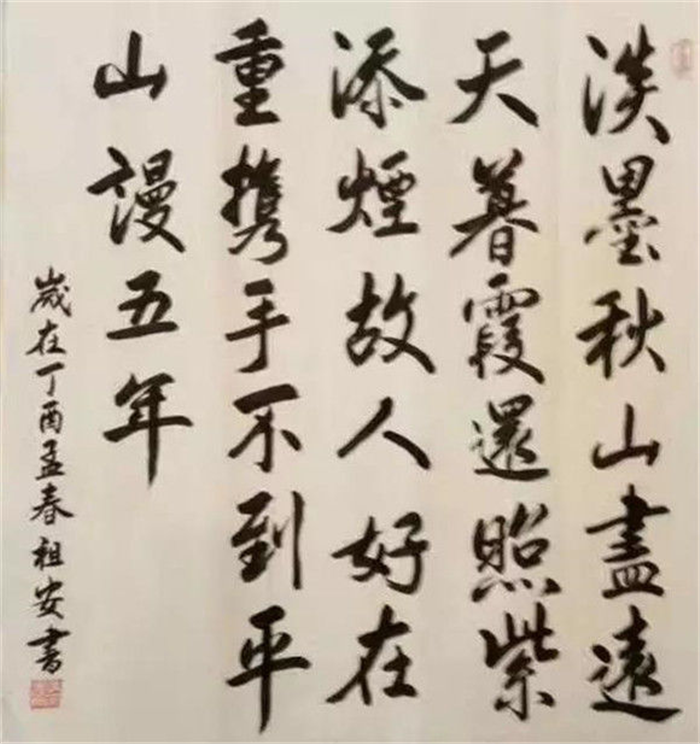 淡墨秋山盡遠
天暮霞還照紫
添煙故人好在
重携手不到平
山謾五年
歲在丁酉孟春祖安書